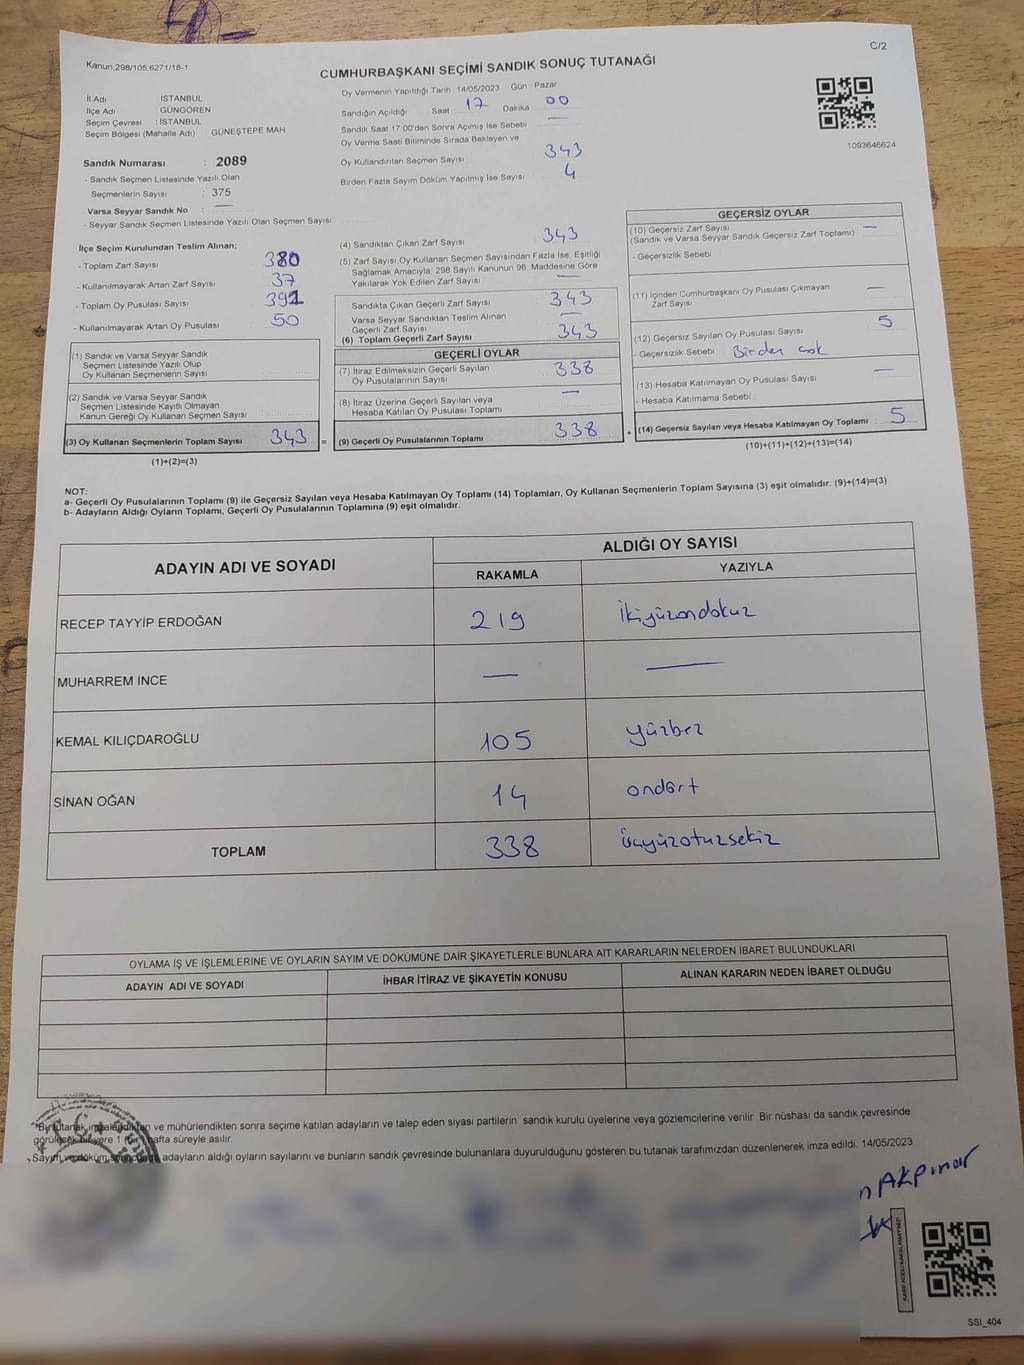 C/2
Kanun;298/105,6271/18-1
CUMHURBAŞKANI SEÇİMİ SANDIK SONUÇ TUTANAĞI
İl Adı : İSTANBUL
İlçe Adı : GÜNGÖREN
Seçim Çevresi : İSTANBUL
Seçim Bölgesi (Mahalle Adı) GÜNEŞTEPE MAH.
Sandık Numarası : 2089
- Sandık Seçmen Listesinde Yazılı Olan
Seçmenlerin Sayısı : 375
Varsa Seyyar Sandık No : —
- Seyyar Sandık Seçmen Listesinde Yazılı Olan Seçmen Sayısı:
Oy Vermenin Yapıldığı Tarih : 14/05/2023 Gün : Pazar
Sandığın Açıldığı Saat : 17 Dakika : 00
Sandık Saat 17:00'den Sonra Açımış İse Sebebi : —
Oy Verme Saati Bitiminde Sırada Bekleyen ve
Oy Kullandırılan Seçmen Sayısı 343
Birden Fazla Sayım Döküm Yapılmış İse Sayısı 4
1093646624
İlçe Seçim Kurulundan Teslim Alınan;
- Toplam Zarf Sayısı 380
- Kullanılmayarak Artan Zarf Sayısı 37
- Toplam Oy Pusulası Sayısı 392
- Kullanılmayarak Artan Oy Pusulası 50
(1) Sandık ve Varsa Seyyar Sandık
Seçmen Listesinde Yazılı Olup
Oy Kullanan Seçmenlerin Sayısı
(2) Sandık ve Varsa Seyyar Sandık
Seçmen Listesinde Kayıtlı Olmayan
Kanun Gereği Oy Kullanan Seçmen Sayısı
(3) Oy Kullanan Seçmenlerin Toplam Sayısı 343 =
(1)+(2)=(3)
(4) Sandıktan Çıkan Zarf Sayısı 343
(5) Zarf Sayısı Oy Kullanan Seçmen Sayısından Fazla İse, Eşitliği
Sağlamak Amacıyla; 298 Sayılı Kanunun 98. Maddesine Göre
Yakılarak Yok Edilen Zarf Sayısı —
Sandıkta Çıkan Geçerli Zarf Sayısı 343
Varsa Seyyar Sandıktan Teslim Alınan
Geçerli Zarf Sayısı —
(6) Toplam Geçerli Zarf Sayısı 343
GEÇERLİ OYLAR
(7) İtiraz Edilmeksizin Geçerli Sayılan
Oy Pusulalarının Sayısı 338
(8) İtiraz Üzerine Geçerli Sayılan veya
Hesaba Katılan Oy Pusulası Toplamı —
(9) Geçerli Oy Pusulalarının Toplamı 338 +
GEÇERSİZ OYLAR
(10) Geçersiz Zarf Sayısı —
(Sandık ve Varsa Seyyar Sandık Geçersiz Zarf Toplamı)
- Geçersizlik Sebebi
(11) İçinden Cumhurbaşkanı Oy Pusulası Çıkmayan
Zarf Sayısı —
(12) Geçersiz Sayılan Oy Pusulası Sayısı 5
- Geçersizlik Sebebi Birden çok
(13) Hesaba Katılmayan Oy Pusulası Sayısı —
- Hesaba Katılmama Sebebi
(14) Geçersiz Sayılan veya Hesaba Katılmayan Oy Toplamı : 5
(10)+(11)+(12)+(13)=(14)
NOT:
a- Geçerli Oy Pusulalarının Toplamı (9) ile Geçersiz Sayılan veya Hesaba Katılmayan Oy Toplamı (14) Toplamları, Oy Kullanan Seçmenlerin Toplam Sayısına (3) eşit olmalıdır. (9)+(14)=(3)
b- Adayların Aldığı Oyların Toplamı, Geçerli Oy Pusulalarının Toplamına (9) eşit olmalıdır.
ADAYIN ADI VE SOYADI
ALDIĞI OY SAYISI
RAKAMLA YAZIYLA
RECEP TAYYİP ERDOĞAN 219 ikiyüzondokuz
MUHARREM İNCE — —
KEMAL KILIÇDAROĞLU 105 yüzbeş
SİNAN OĞAN 14 ondört
TOPLAM 338 üçyüzotuzsekiz
OYLAMA İŞ VE İŞLEMLERİNE VE OYLARIN SAYIM VE DÖKÜMÜNE DAİR ŞİKAYETLERLE BUNLARA AİT KARARLARIN NELERDEN İBARET BULUNDUKLARI
ADAYIN ADI VE SOYADI İHBAR İTİRAZ VE ŞİKAYETİN KONUSU ALINAN KARARIN NEDEN İBARET OLDUĞU
*Bu tutanak imzalandıktan ve mühürlendikten sonra seçime katılan adayların ve talep eden siyasi partilerin sandık kurulu üyelerine veya gözlemcilerine verilir. Bir nüshası da sandık çevresinde
görülecek bir yere 1 (bir) hafta süreyle asılır.
Sayım ve döküm sonucunda adayların aldığı oyların sayılarını ve bunların sandık çevresinde bulunanlara duyurulduğunu gösteren bu tutanak tarafımızdan düzenlenerek imza edildi. 14/05/2023
n AKpınar
KARE KODU KARALAMAYINIZ!
SSI_404